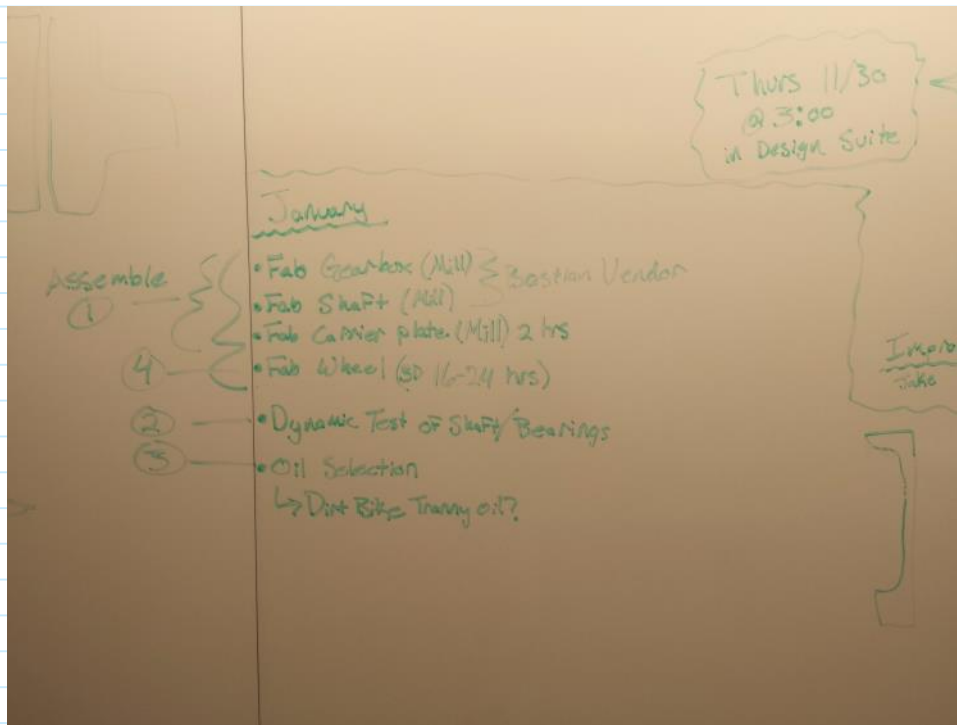 Thurs 11/30
@ 3:00
in Design Suite
January
Assemble
1
• Fab Gearbox (Mill)
Bastian Vendor
• Fab Shaft (Mill)
• Fab Carrier plate (Mill) 2 hrs
4
• Fab Wheel (3D 16-24 hrs)
2
• Dynamic Test of Shaft/Bearings
3
• Oil Selection
↳ Dirt Bike Tranny oil?
Jake